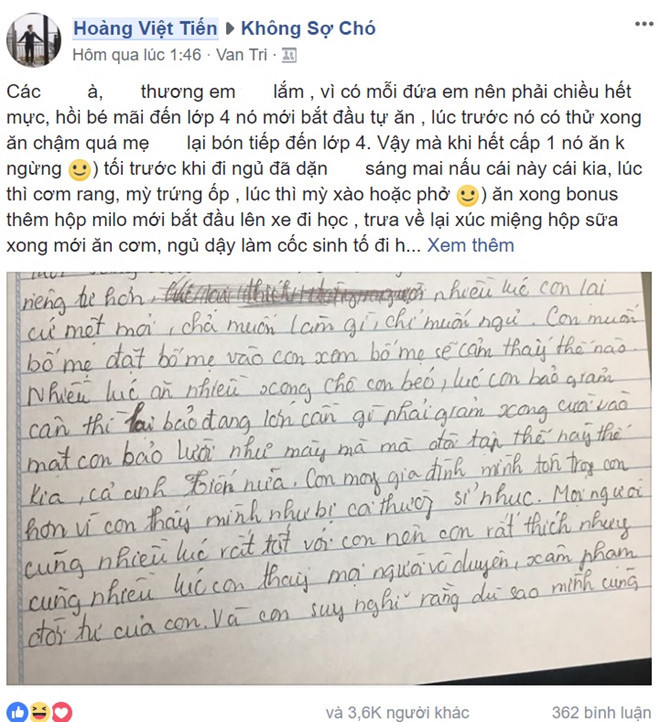 Hoàng Việt Tiến ▸ Không Sợ Chó
Hôm qua lúc 1:46 · Van Tri ·
Các à, thương em lắm , vì có mỗi đứa em nên phải chiều hết
mực, hồi bé mãi đến lớp 4 nó mới bắt đầu tự ăn , lúc trước nó có thử xong
ăn chậm quá mẹ lại bón tiếp đến lớp 4. Vậy mà khi hết cấp 1 nó ăn k
ngừng 🙂) tối trước khi đi ngủ đã dặn sáng mai nấu cái này cái kia, lúc
thì cơm rang, mỳ trứng ốp , lúc thì mỳ xào hoặc phở 🙂) ăn xong bonus
thêm hộp milo mới bắt đầu lên xe đi học , trưa về lại xúc miệng hộp sữa
xong mới ăn cơm, ngủ dậy làm cốc sinh tố đi h... Xem thêm
riêng tư hơn, nhiều lúc con lai
cứ mệt mỏi, chả muốn làm gì, chỉ muốn ngủ. Con muốn
bố mẹ đặt bố mẹ vào con xem bố mẹ sẽ cảm thấy thế nào
Nhiều lúc ăn nhiều xong chê con béo, lúc con bảo giảm
cân thì lại bảo đang lớn cần gì phải giảm xong cười vào
mặt con bảo lười như mày mà mà đòi tập thế này thế
kia, cả anh Tiến nữa. Con mong gia đình mình tôn trọng con
hơn vì con thấy mình như bị coi thường sỉ nhục. Mọi người
cũng nhiều lúc rất tốt với con nên con rất thích nhưng
cũng nhiều lúc con thấy mọi người vô duyên, xâm phạm
đời tư của con. Và con suy nghĩ rằng dù sao mình cũng
và 3,6K người khác 362 bình luận